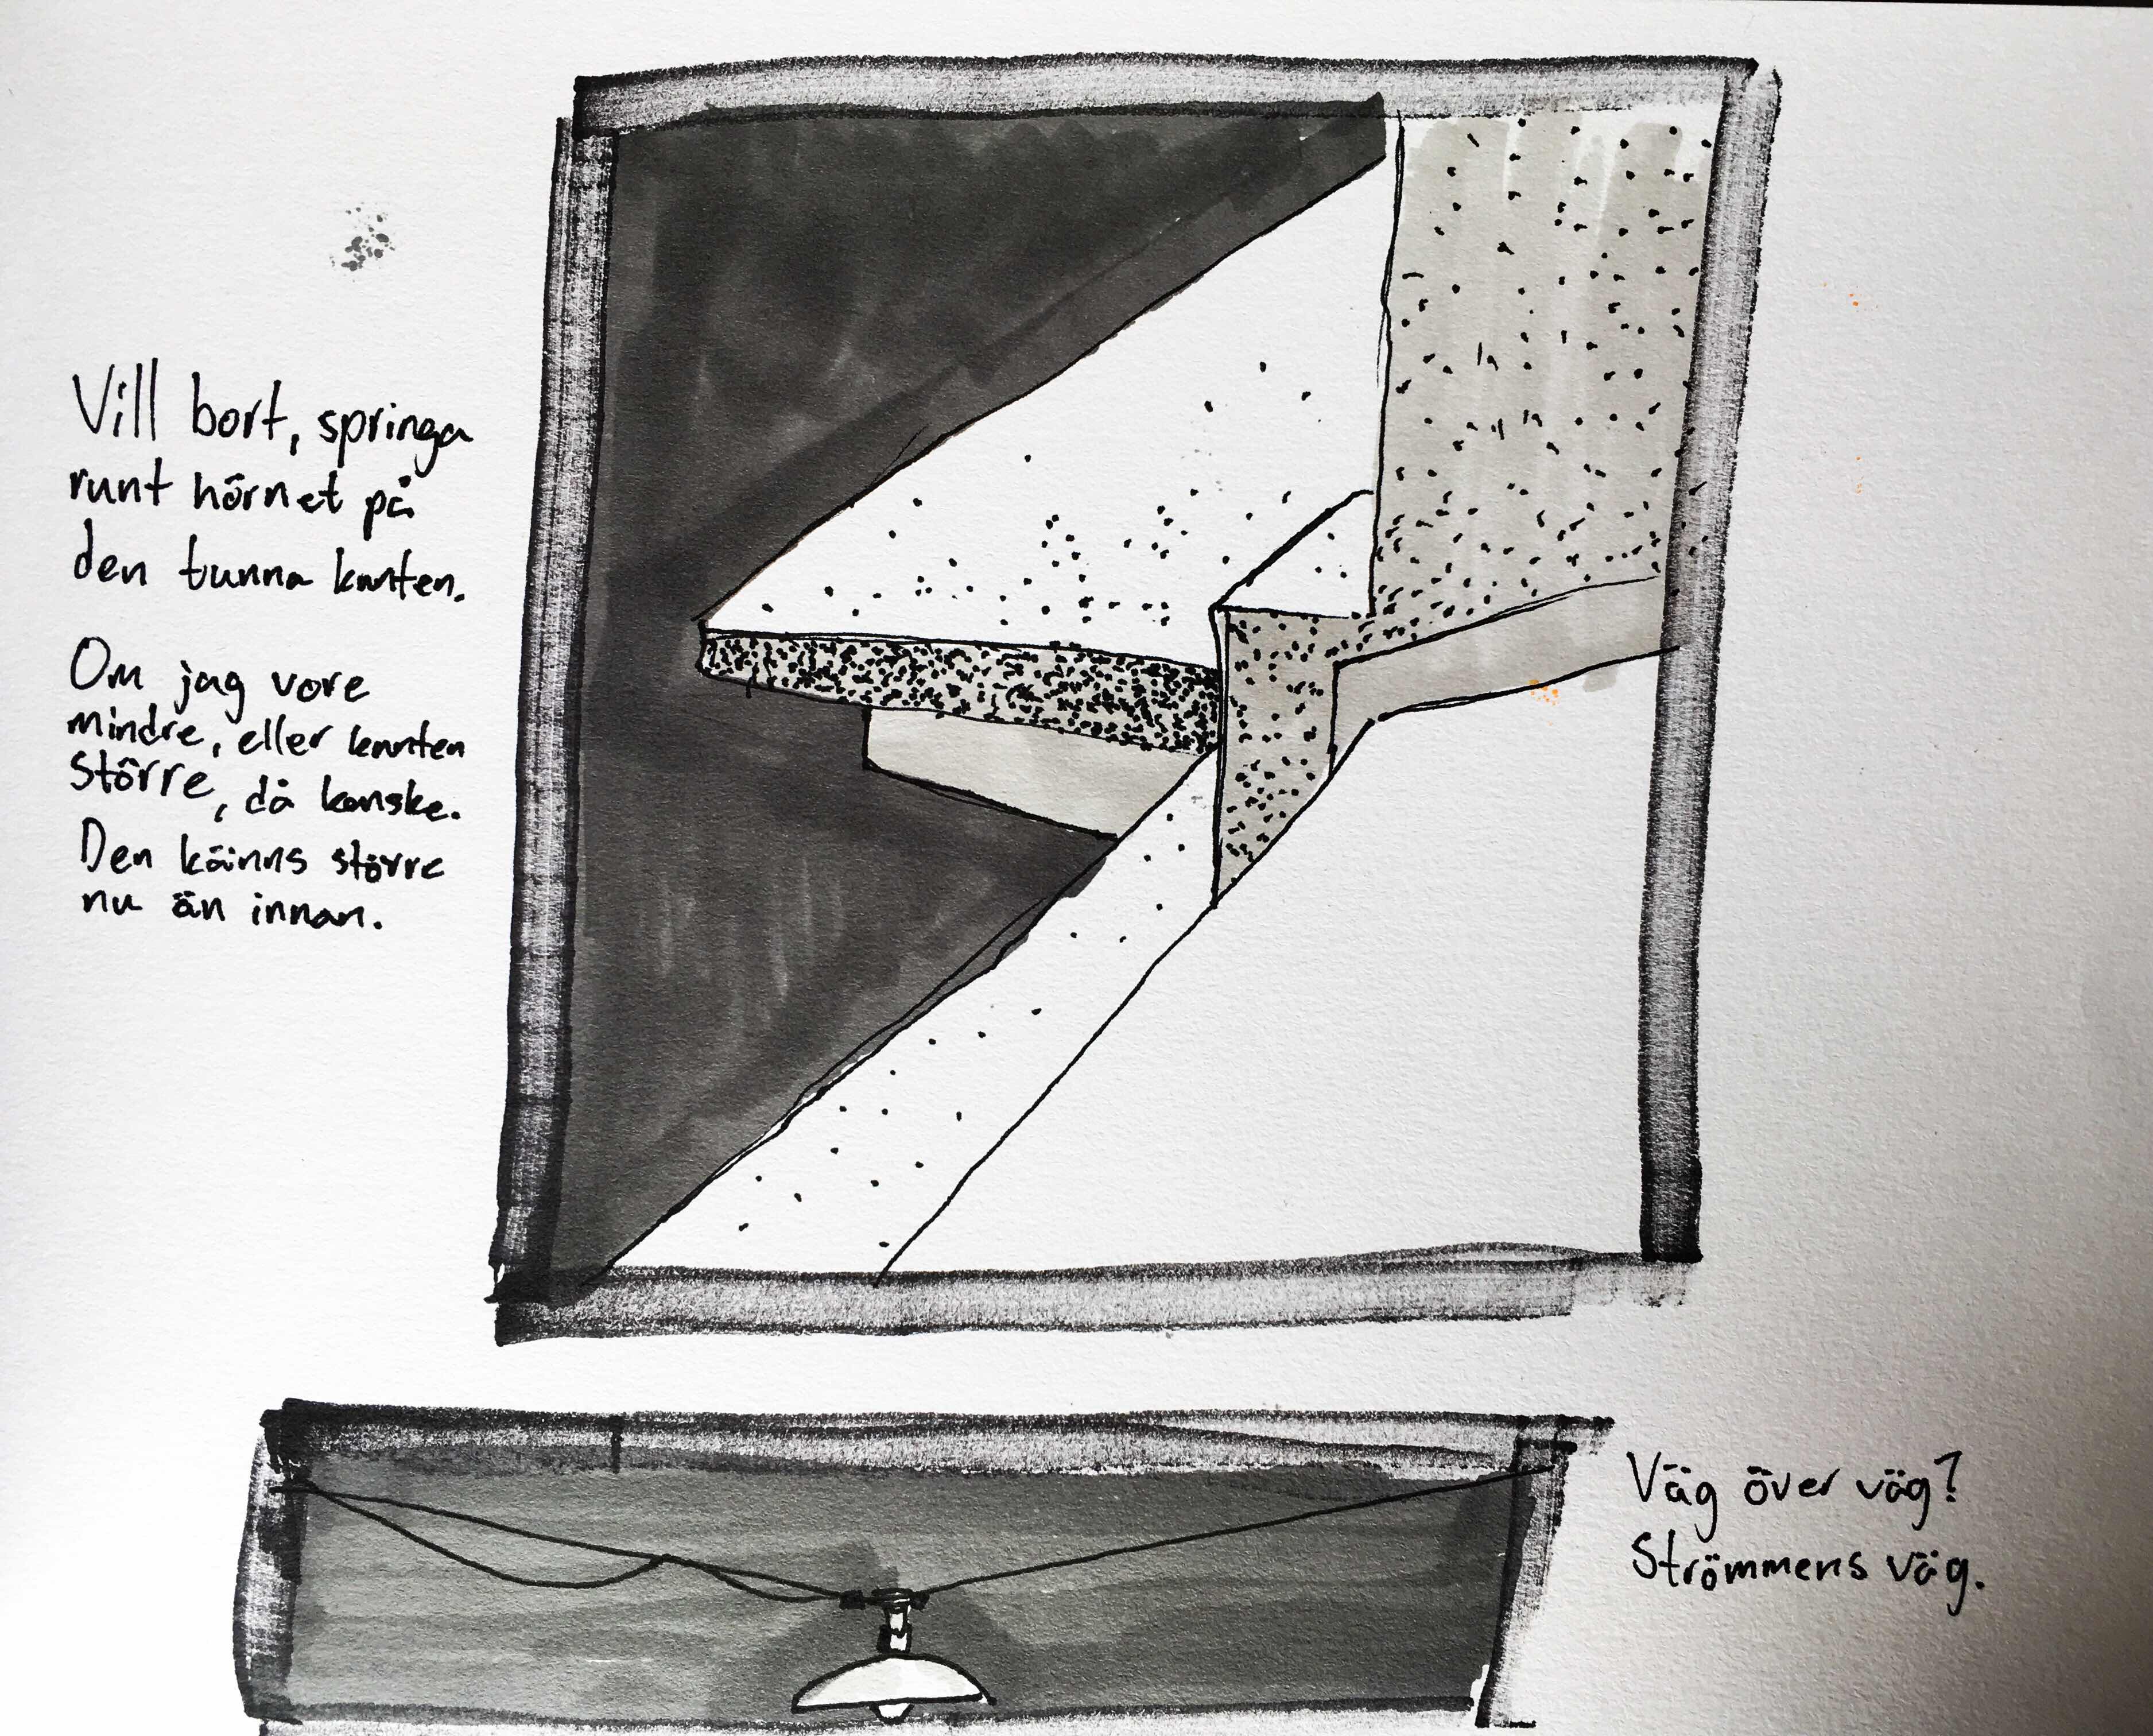 Vill bort, springa
runt hörnet på
den tunna kanten.
Om jag vore
mindre, eller kanten
större, då kanske.
Den känns större
nu än innan.
Väg över väg?
Strömmens väg.